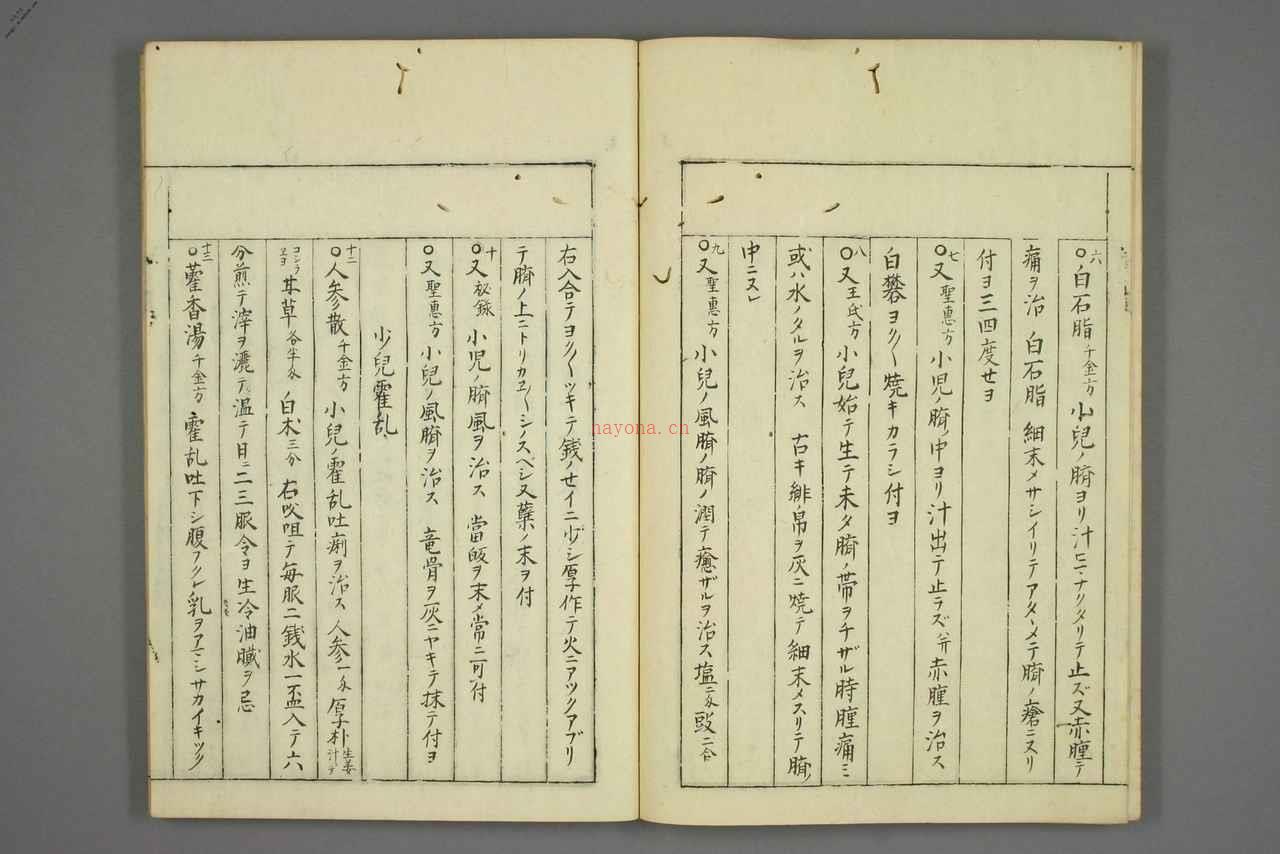 六〇白石脂千金方 小兒ノ臍ヨリ汁出ナカリタリテ止ズ又赤腫テ
痛ヲ治 白石脂 細末メサシイリテアタヽメテ臍ノ瘡ニスリ
付ヨ三四度セヨ
七〇又聖惠方 小児ノ臍中ヨリ汁出テ止ラズ并赤腫ヲ治ス
白礬ヨク〱焼キカラシ付ヨ
八〇又王氏方 小兒始テ生テ未タ臍ノ帯ヲチザル時腫痛ミ
或ハ水ノタルヲ治ス 古キ緋帛ヲ灰ニ焼テ細末メスリテ臍ノ
中ニスレ
九〇又聖惠方 小兒ノ風臍ノ臍ノ潤テ癒ザルヲ治ス塩二分豉二合
右入合テヨク〱ツキテ銭ノセイニ少シ厚作テ火ニアツクアブリ
テ臍ノ上ニトリカヱ〱シノスベシ又藥ノ末ヲ付
十〇又秘録 小児ノ臍風ヲ治ス 當皈ヲ末メ常ニ可付
〇又聖惠方 小兒ノ風臍ヲ治ス 竜骨ヲ灰ニヤキテ抹テ付ヨ
少兒霍乱
十二〇人参散千金方 小兒ノ霍乱吐痢ヲ治ス 人参一分 厚朴生姜汁テ
コシラエヨ 甘草各半分 白朮三分 右㕮咀テ毎服二銭水一盃入テ六
分煎テ滓ヲ漉テ温テ日ニ二三服令ヨ生冷油膩ヲ忌
十三〇藿香湯千金方 霍乱吐下シ腹フクレ乳ヲアマシサカイキツク
nayona.cn